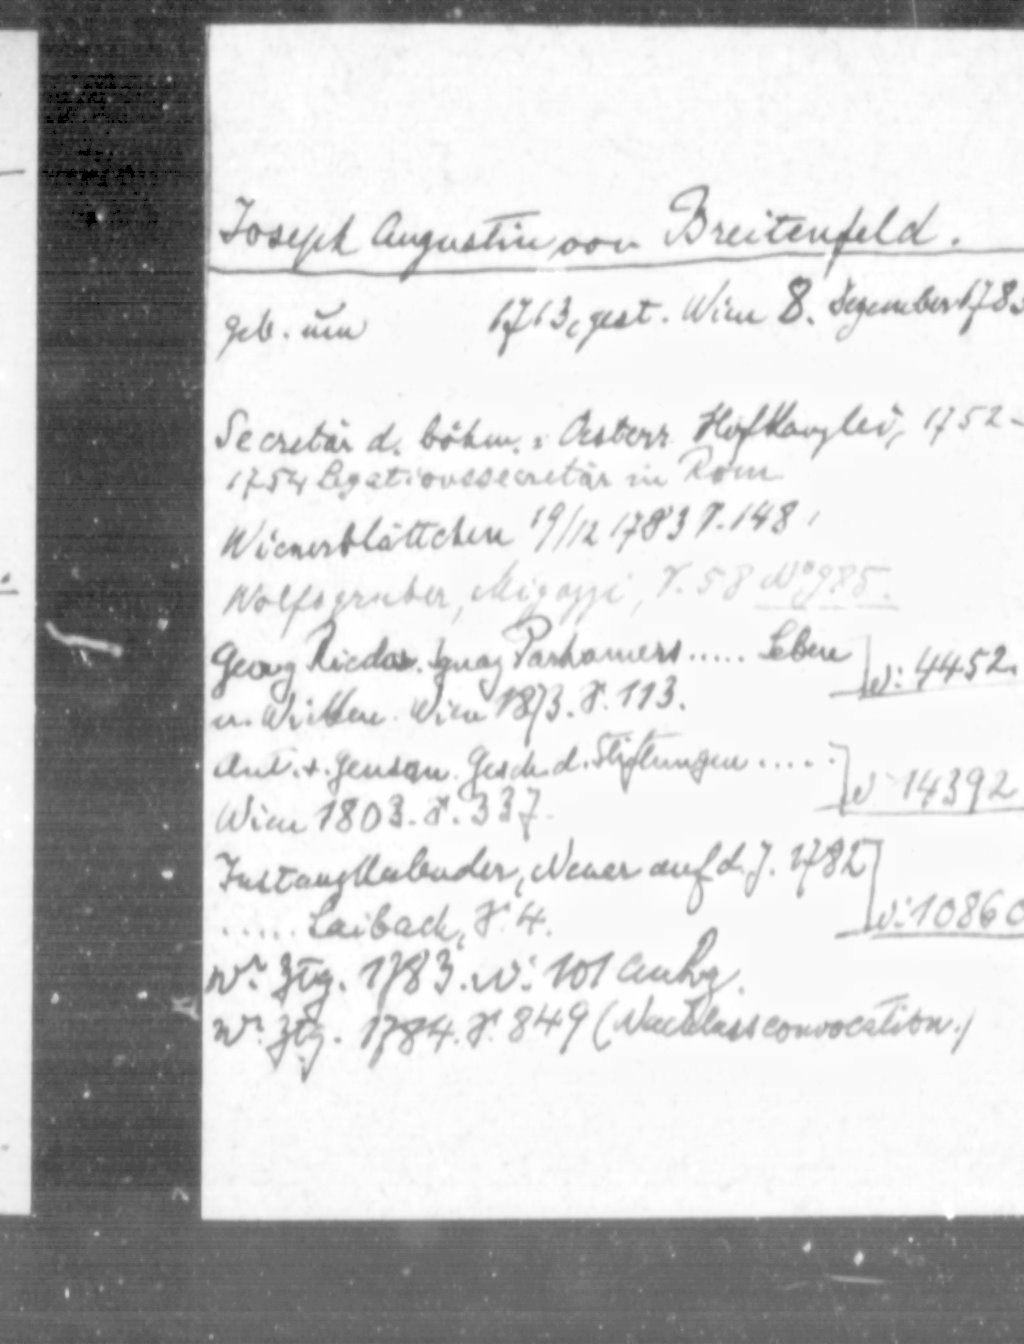 Joseph Augustin von Breitenfeld.
geb. um 1713, gest. Wien 8. Dezember 1783
Secretär d. böhm. : Oesterr. Hofkanzlei, 1752-
1754 Legationssecretär in Rom
Wienerblättchen 19/12 1783 S. 148
Wolfsgruber, Migazzi, S. 58 No 985.
Georg Rieder. Ignaz Parhamers ..... Leben
u. Wirken. Wien 1873. S. 113. N: 4452.
Ant. v. Geusau. Gesch. d. Stiftungen .....
Wien 1803. S. 337. N 14392
Instanzkalender, Neuer auf d. J. 1782
..... Laibach, S. 4. N: 10860
Wr. Ztg. 1783. N: 101 Anhg.
Wr. Ztg. 1784. S. 849 (Nachlassconvocation.)